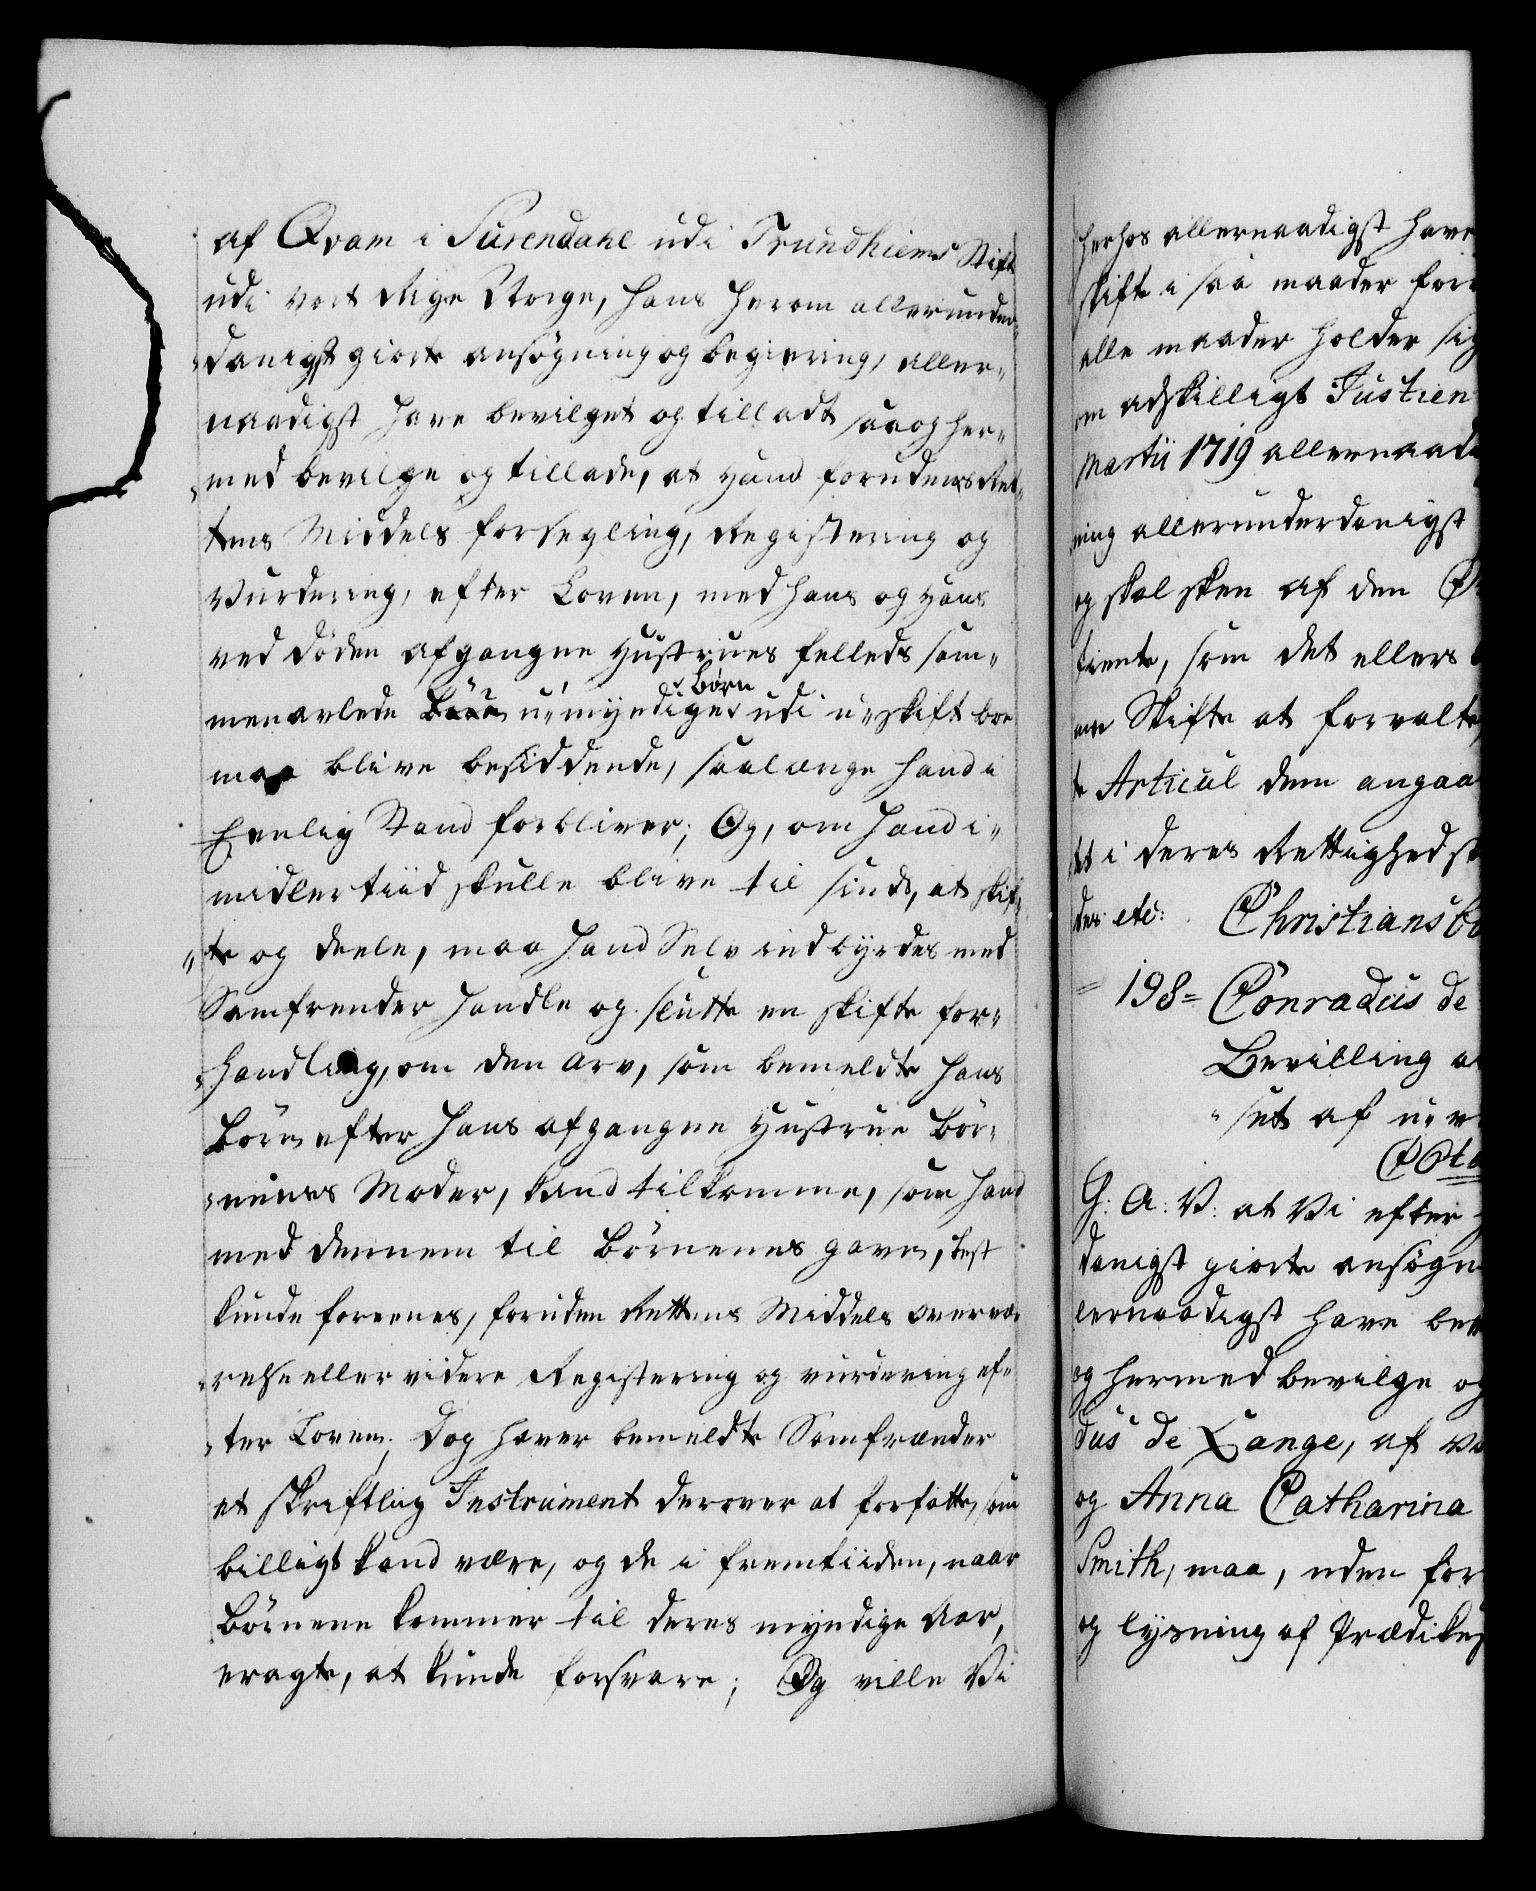 af Qvam i Surendahl udi Trundhiems Stift
udi vort Rige Norge, hans herom allerunder„
„danigst giorte ansøgning og begiering, aller„
naadigst have bevilget og tilladt saa og her„
„med bevilge og tillade, at hand foruden Ret„
tens Middels forsegling, Registering og
Vurdering, efter Loven, med hans og hans
ved døden afgangne Hustrues felleds sam„
menavlede u„myndige børn udi u„skift boe
maa blive besiddende, saalænge hand i
Eenlig Stand forbliver; Og, om hand i„
midlertiid skulle blive til sinds, at skif„
„te og deele, maa hand Selv indbyrdes med
Samfrender handle og slutte en skifte for„
„handling, om den arv, som bemeldte hans
børn efter hans afgangne Hustrue bør„
„nenes Moder, kand tilkomme, som hand
med dennem til børnenes gavn, best
kunde foreenes, foruden Rettens Middels overvæ„
„relse eller videre Registering og vurdering ef„
„ter Loven; Dog haver bemeldte Samfrænder
et skriftlig Instrument derover at forfatte, som
billigt kand være, og de i fremtiiden, naar
børnene kommer til deres myndige Aar,
eragte, at kunde forsvare; Og ville Vi
herhos allernaadigst have
skifte i saa maader for
alle maader holder sig
om adskilligt Justien
Martii 1719 allernaad
ning allerunderdanigst
og skal skee af den
tiente, som det ellers
ne Skifte at forvalte
te Articul dem angaa
tet i deres Rettighed
des etc: Christiansbo
198= Conradus de
Bevilling
set af
G: A: V: at Vi efter
danigst giorte ansøgn
lernaadigst have be
og hermed bevilge og
dus de Lange, af
og Anna Catharina
Smith, maa, uden for
og lysning af Prædike